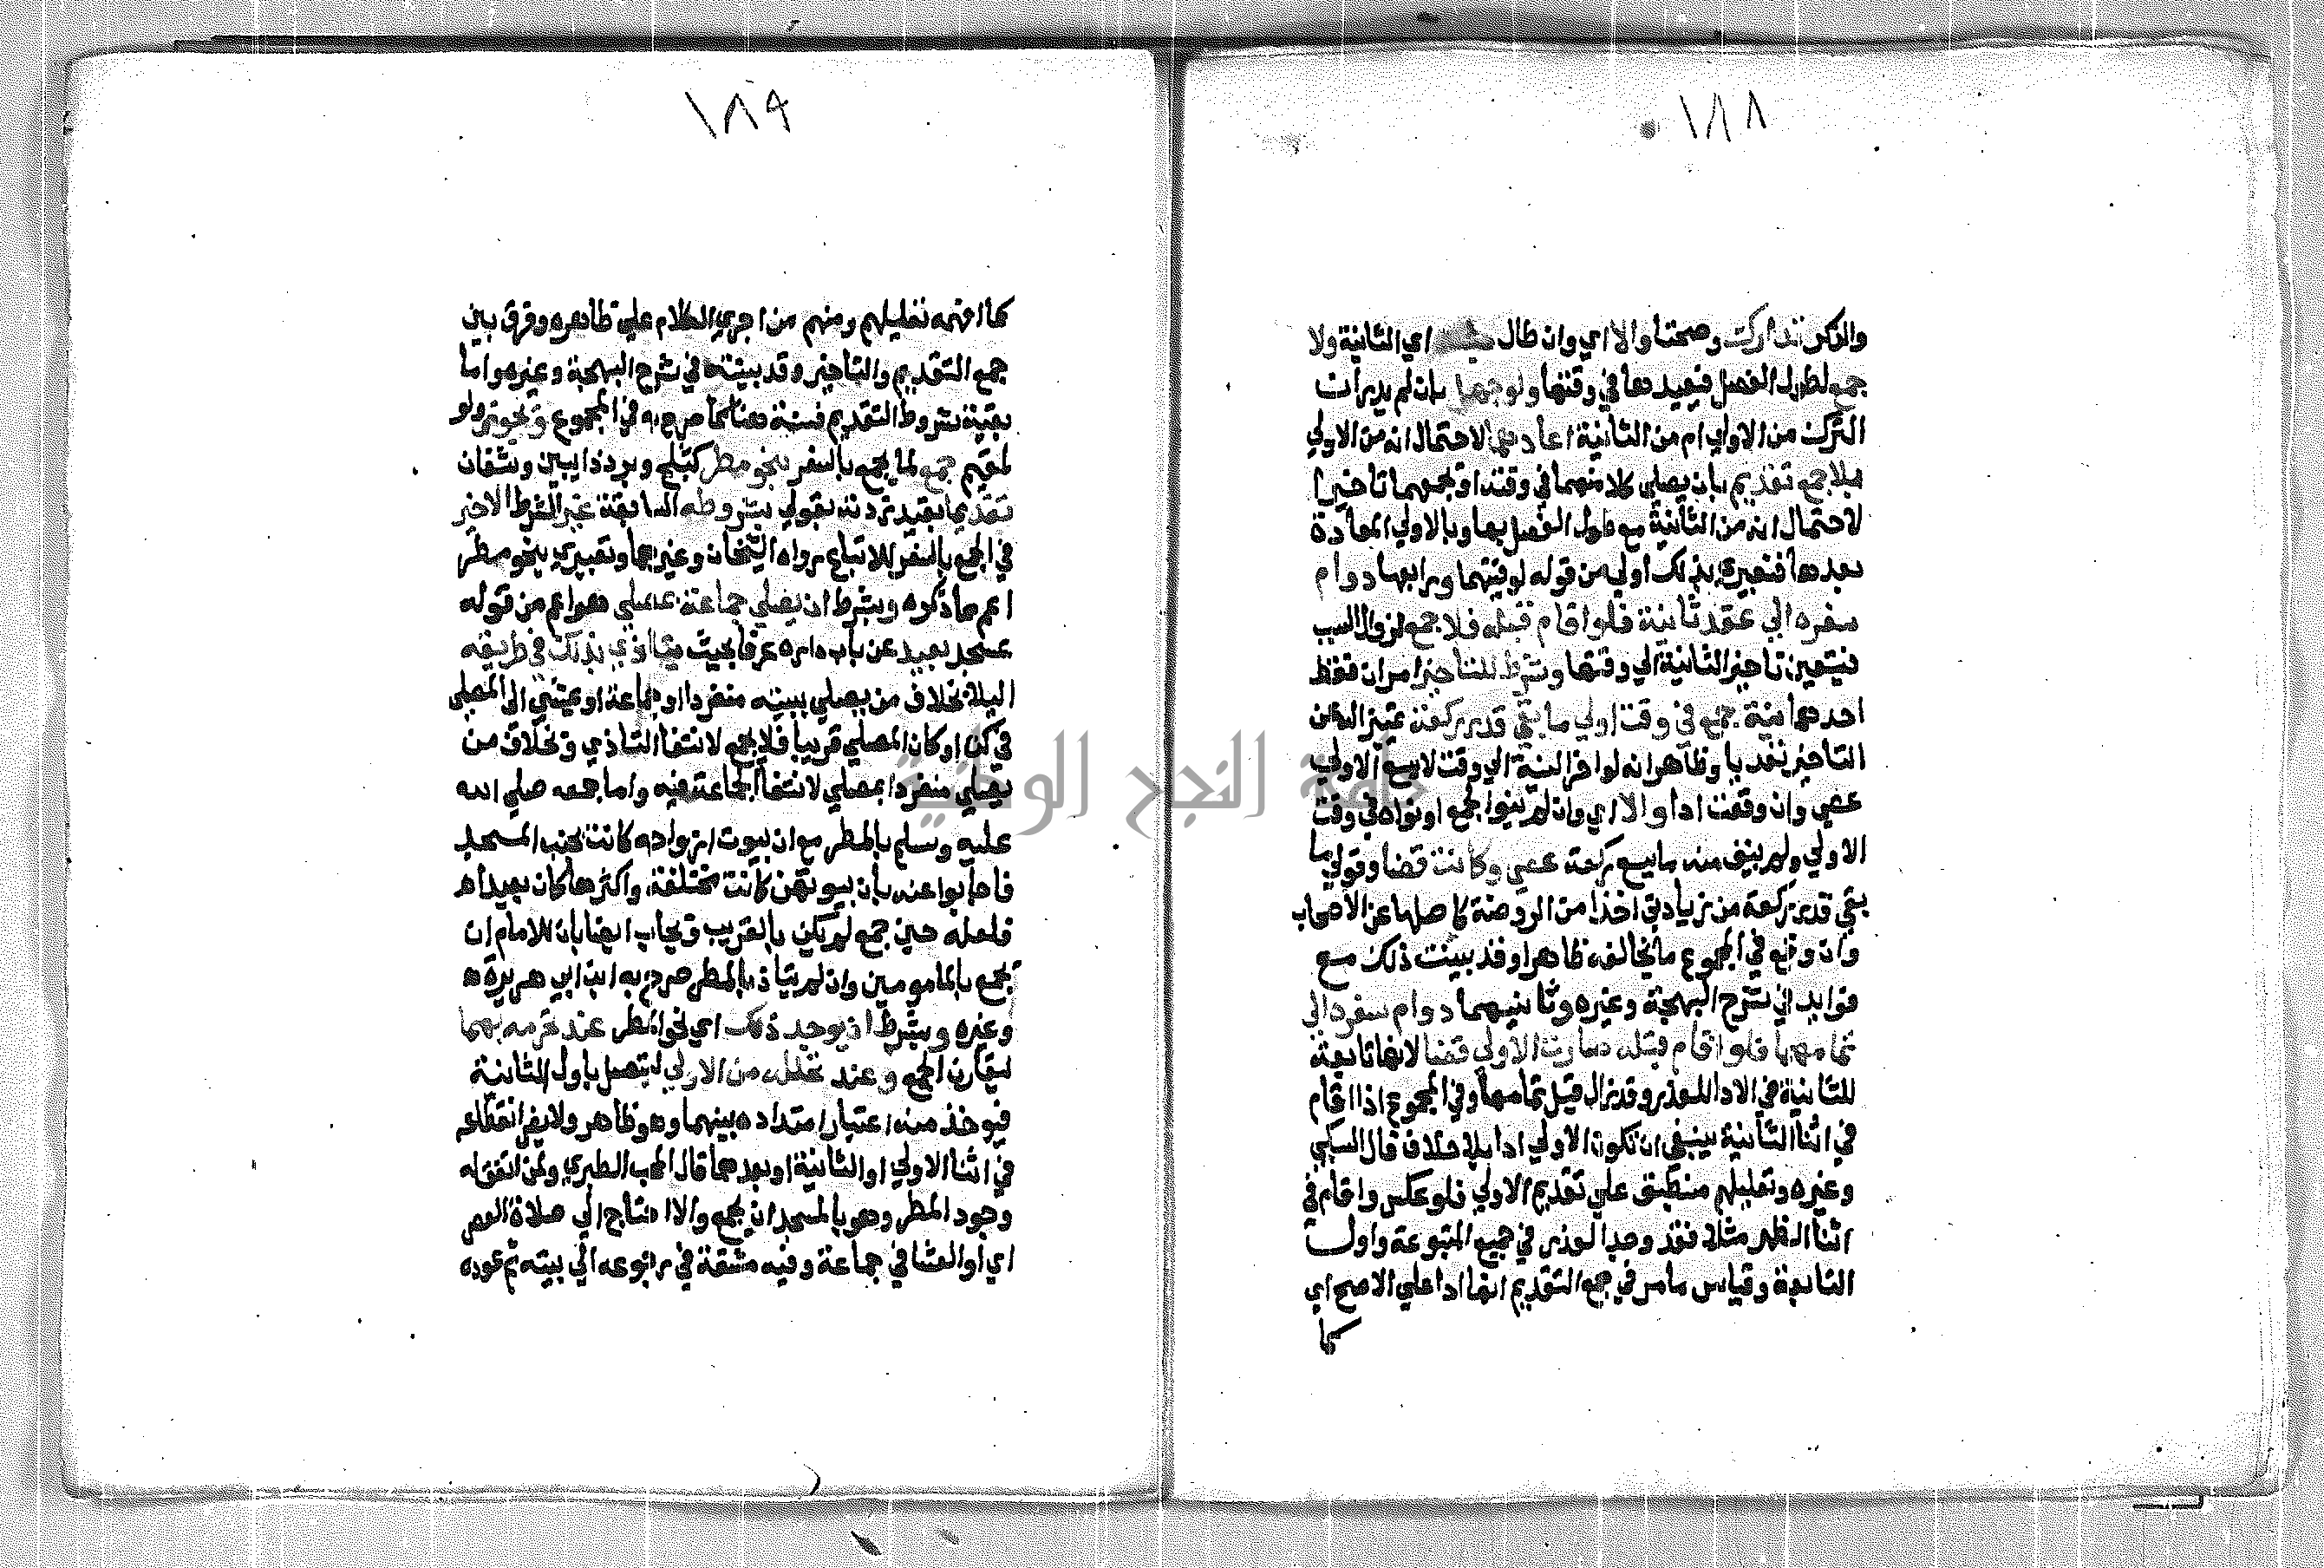 ١٨٨
والذكر تداركت وصحتا والا اي وان طال بطلت اي الثانية ولا
جمع لطول الفصل فيعيدها في وقتها ولو جهل بان لم يدر ان
الترك من الاولي ام من الثانية اعادهما لاحتمال انه من الاولي
بلا جمع تقديم بان يصلي كلا منهما في وقته او يجمعهما تاخيرا
لاحتمال انه من الثانية مع طول الفصل بها وبالاولي المعادة
بعدها فتعبيري بذلك اولي من قوله لوقتيهما ورابعها دوام
سفره الي عقد ثانية فلو اقام قبله فلا جمع لزوال السبب
فيتعين تاخير الثانية الي وقتها وشرط للتاخير امران فقط
احدهما نية جمع في وقت اولي ما بقي قدر ركعة تمييزا له عن
التاخير تعديا وظاهر انه لو اخر النية الي وقت لا يسع الاولي
عصي وان وقعت ادا والا اي وان لم ينو الجمع او نواه في وقت
الاولي ولم يبق منه ما يسع ركعة عصي وكانت قضا وقولي ما
بقي قدر ركعة من زيادتي اخذا من الروضة كاصلها عن الاصحاب
وان وقع في المجموع ما يخالفه ظاهرا وقد بينت ذلك مع
فوايد في شرح البهجة وغيره وثانيهما دوام سفره الي
تمامهما فلو اقام قبله صارت الاولي قضا لانها تابعة
للثانية في الادا للعذر وقد زال قبل تمامها وفي المجموع اذا اقام
في اثنا الثانية ينبغي ان تكون الاولي ادا بلا خلاف قال السبكي
وغيره وتعليلهم منطبق علي تقديم الاولي فلو عكس واقام في
اثنا الظهر مثلا فقد وجد العذر في جميع المتبوعة واول
التابعة وقياس ما مر في جمع التقديم انها ادا علي الاصح اي
كما
١٨٩
كما افهمه تعليلهم ومنهم من اجري الكلام علي ظاهره وفرق بين
جمع التقديم والتاخير وقد بينته في شرح البهجة وغيره واما
بقية شروط التقديم فسنة هنا كما صرح به في المجموع ويجوز ولو
لمقيم جمع لما يجمع بالسفر بنحو مطر كثلج وبرد ذايبين وشفان
تقديما بقيد زدته بقولي بشروطه السابقة غير الشرط الاخير
في الجمع بالسفر للاتباع رواه الشيخان وغيرهما وتعبيري بنحو مطر
اعم مما ذكره وبشرط ان يصلي جماعة بمصلي هو اعم من قوله
بمسجد بعيد عن باب داره عرفا بحيث يتاذي بذلك في طريقه
اليه بخلاف من يصلي ببيته منفردا او جماعة او يمشي الي المصلي
في كن او كان المصلي قريبا فلا يجمع لانتفا التاذي وبخلاف من
يصلي منفردا بمصلي لانتفا الجماعة فيه واما جمعه صلي الله
عليه وسلم بالمطر مع ان بيوت ازواجه كانت بجنب المسجد
فاجابوا عنه بان بيوتهن كانت مختلفة واكثرها كان بعيدا
فلعله حين جمع لم يكن بالقريب ويجاب ايضا بان للامام ان
يجمع بالمامومين وان لم يتاذ بالمطر صرح به ابن ابي هريرة
وغيره وبشرط ان يوجد ذلك اي نحو المطر عند تحرمه بهما
ليقارن الجمع وعند تحلله من الاولي ليتصل باول الثانية
فيوخذ منه اعتبار امتداده بينهما وهو ظاهر ولا يضر انقطاعه
في اثنا الاولي او الثانية او بعدهما قال المحب الطبري ولمن اتفق له
وجود المطر وهو بالمسجد ان يجمع والا احتاج الي صلاة العصر
اي او العشا في جماعة وفيه مشقة في رجوعه الي بيته ثم عوده
جامعة النجاح الوطنية